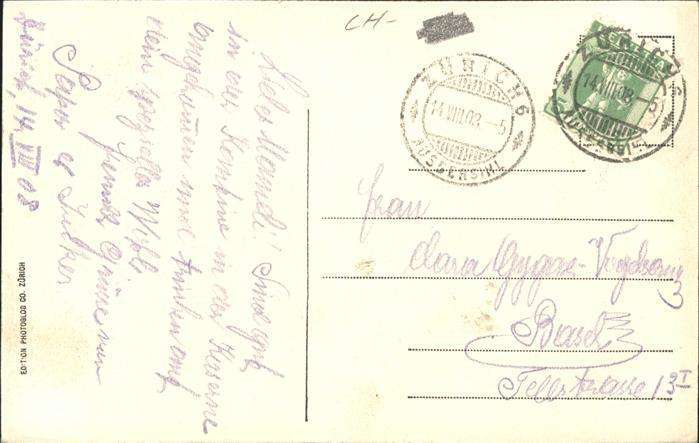 CH-
ZÜRICH 6
14.VIII.08.-5
AUSSERSIHL
ZÜRICH 6
14.VIII.08.-5
AUSSERSIHL
Liebe Mamali! Sind gut
in der Kantine in der Kaserne
angekommen und trinken auf
Dein spezielles Wohl
Papa
Zürich, 14 VIII 08
Frau
Clara
Basel
Tellstrasse 13 I
EDITION PHOTOGLOB CO. ZÜRICH